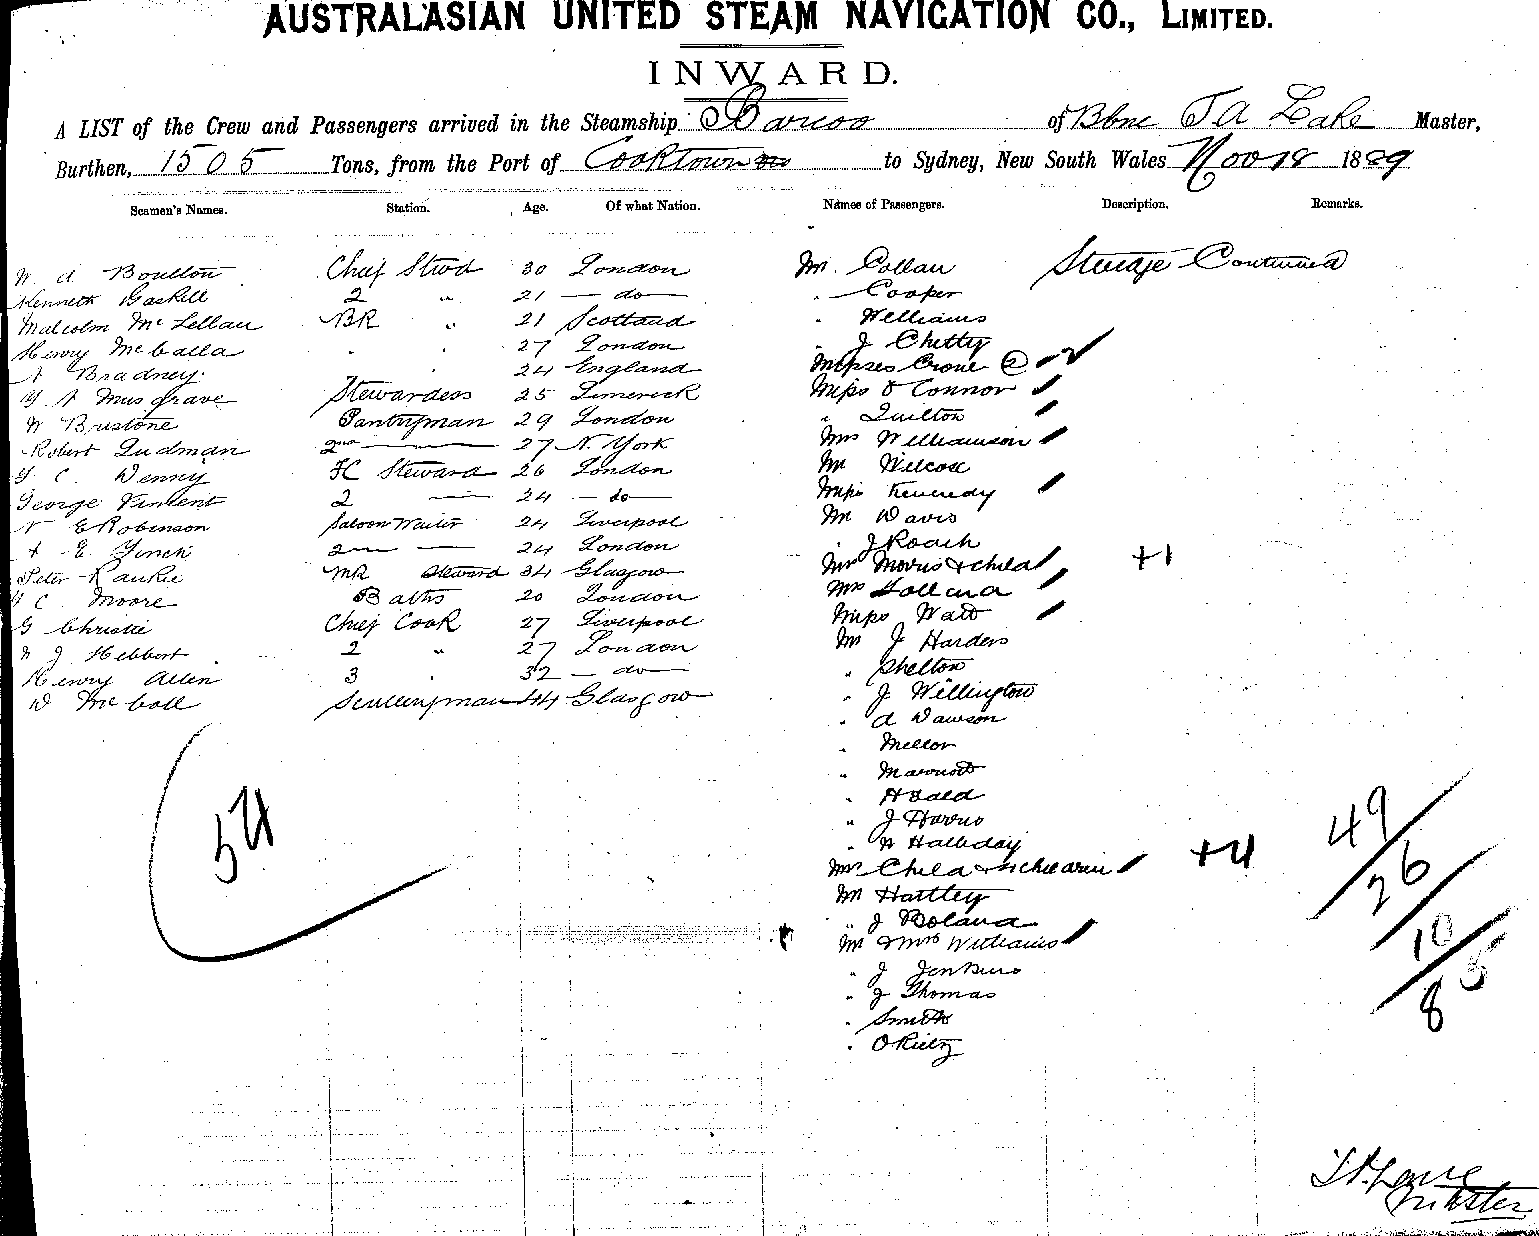 AUSTRALASIAN UNITED STEAM NAVIGATION CO., LIMITED.
INWARD.
A LIST of the Crew and Passengers arrived in the Steamship Barcoo of Bbne J A Lake Master,
Burthen, 1505 Tons, from the Port of Cooktown to Sydney, New South Wales Nov 18 1889
Seamen's Names. Station. Age. Of what Nation. Names of Passengers. Description. Remarks.
W A Boulton Chief Stwd 30 London Mr Collau Steerage Continued
Kenneth Gaskell 2 " 21 - do - " Cooper
Malcolm McLellan BR " 21 Scotland " Williams
Henry McCalla " " 27 London " J Chetty
A Bradney " 24 England Misses Crone 2
M A Musgrave Stewardess 25 Limerick Miss O Connor
W Bristone Pantryman 29 London " Quilton
Robert Ludman 2nd 27 N York Mrs Williamson
C Denny FC Steward 26 London Mr Wilcox
George Vincent 2 24 - do - Miss Kennedy
E Robinson Saloon Waiter 24 Liverpool Mr Davis
E Finck 2 24 London " J Roach
Peter Rankie MR Steward 34 Glasgow Mrs Morris & child +1
C Moore Baths 20 London Mrs Holland
G Christie Chief Cook 27 Liverpool Miss Watt
J Hebbert 2 " 27 London Mr J Harders
Henry Allen 3 " 32 - do - " Shelton
W McColl Sculleryman 44 Glasgow " J Willington
" A Dawson
" Mellor
" Marriott
" H Bald
" J Harris
54
" W Halliday
49
Mrs Child & 4 children +4
26
Mr Hartley
" J Boland
10
Mr & Mrs Williams
" J Jenkins
85
" J Thomas
" Smith
" O Rielly
Master